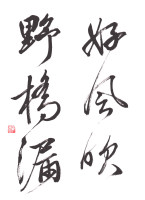 好風吹
野橋漏